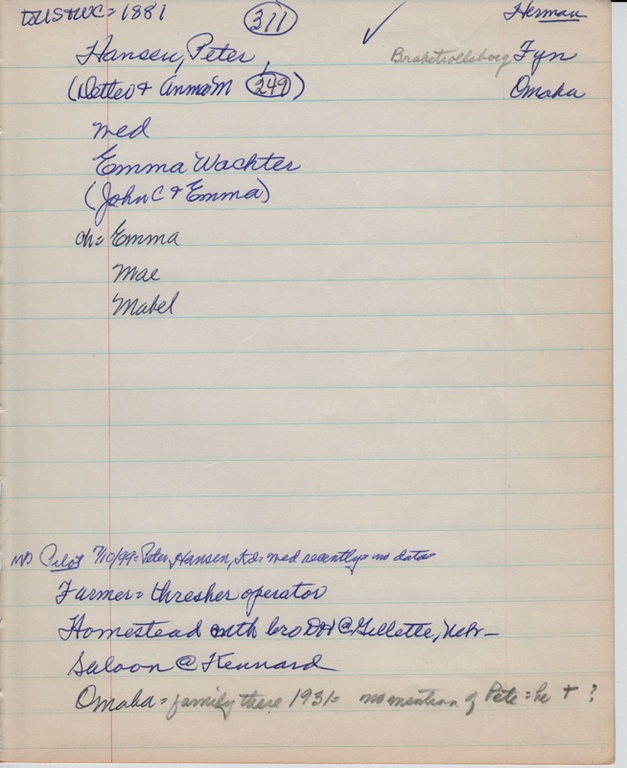 to US & WC = 1881 (311) ✓ Herman
Hansen, Peter Brahetrolleborg Fyn
(Detlev & Anna M (249)) Omaha
med
Emma Wachter
(John C & Emma)
ch = Emma
Mae
Mabel
Pilot 7/10/99 = Peter Hansen, med recently = no data
Farmer = thresher operator
Homestead with bro @ Gillette, Nebr -
Saloon @ Kennard
Omaha = family there 1931 = no mention of Pete = he + ?